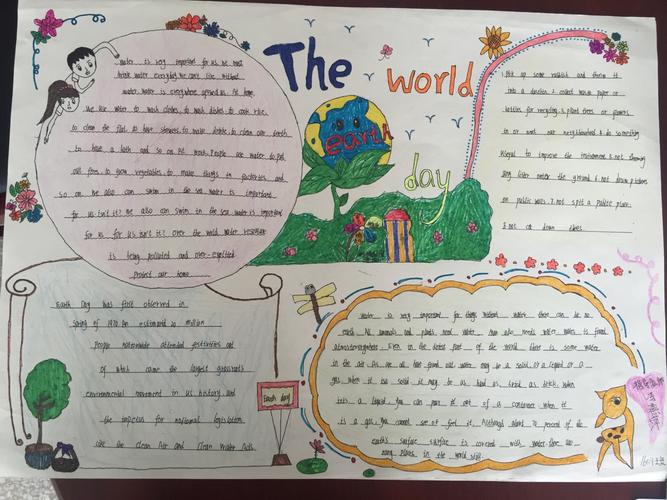 The world
earth
day
water is very important for us we must
drink water everyday. We can't live without
water. water is everywhere around us. At home.
We use water to wash clothes, to wash dishes to cook rice.
to clean the flat. to have showers. to make drinks. to clean our teeth
to have a bath and so on. At work. People use water to put
out fires. to grow vegetables. to make things in factories and
so on. we also can swim in the sea water is important
for us isn't it? we also can swim in the sea. water is important
for us for us isn't it? over the world water resource
is being polluted and over-exploited
Protect our home
1. Pick up some rubbish and throw it
into a dustbin. 2. collect waste paper or
bottles for recycling. 3. plant trees or flowers
in or near our neighbourhood. 4. do something
to improve the 5. not throwing
any litter onto the ground. 6. not draw pictures
on public walls. 7. not spit a public place.
8. not cut down trees
Earth Day was first observed in
Spring of 1970. An estimated 20 million
People nationwide attended festivities out
of which came the largest grassroots
environmental movement in us history, and
the impetus for national legislation
like the Clean Air and Clean Water Acts.
Earth day!
Water is very important for things without water there can be no
earth. All animals and plants need water. Man also needs water. water is found
almost everywhere. Even in the driest part of the world there is some water
in the air. As we all have found out water may be a solid, or a liquid or a
gas. when it is a solid it may be as hard as brick. when
it is a liquid you can pour it out of a container. when it
is a gas, you cannot see or feel it. Although about 70 percent of the
earth's surface surface is covered with water. there are
many places in the world still.